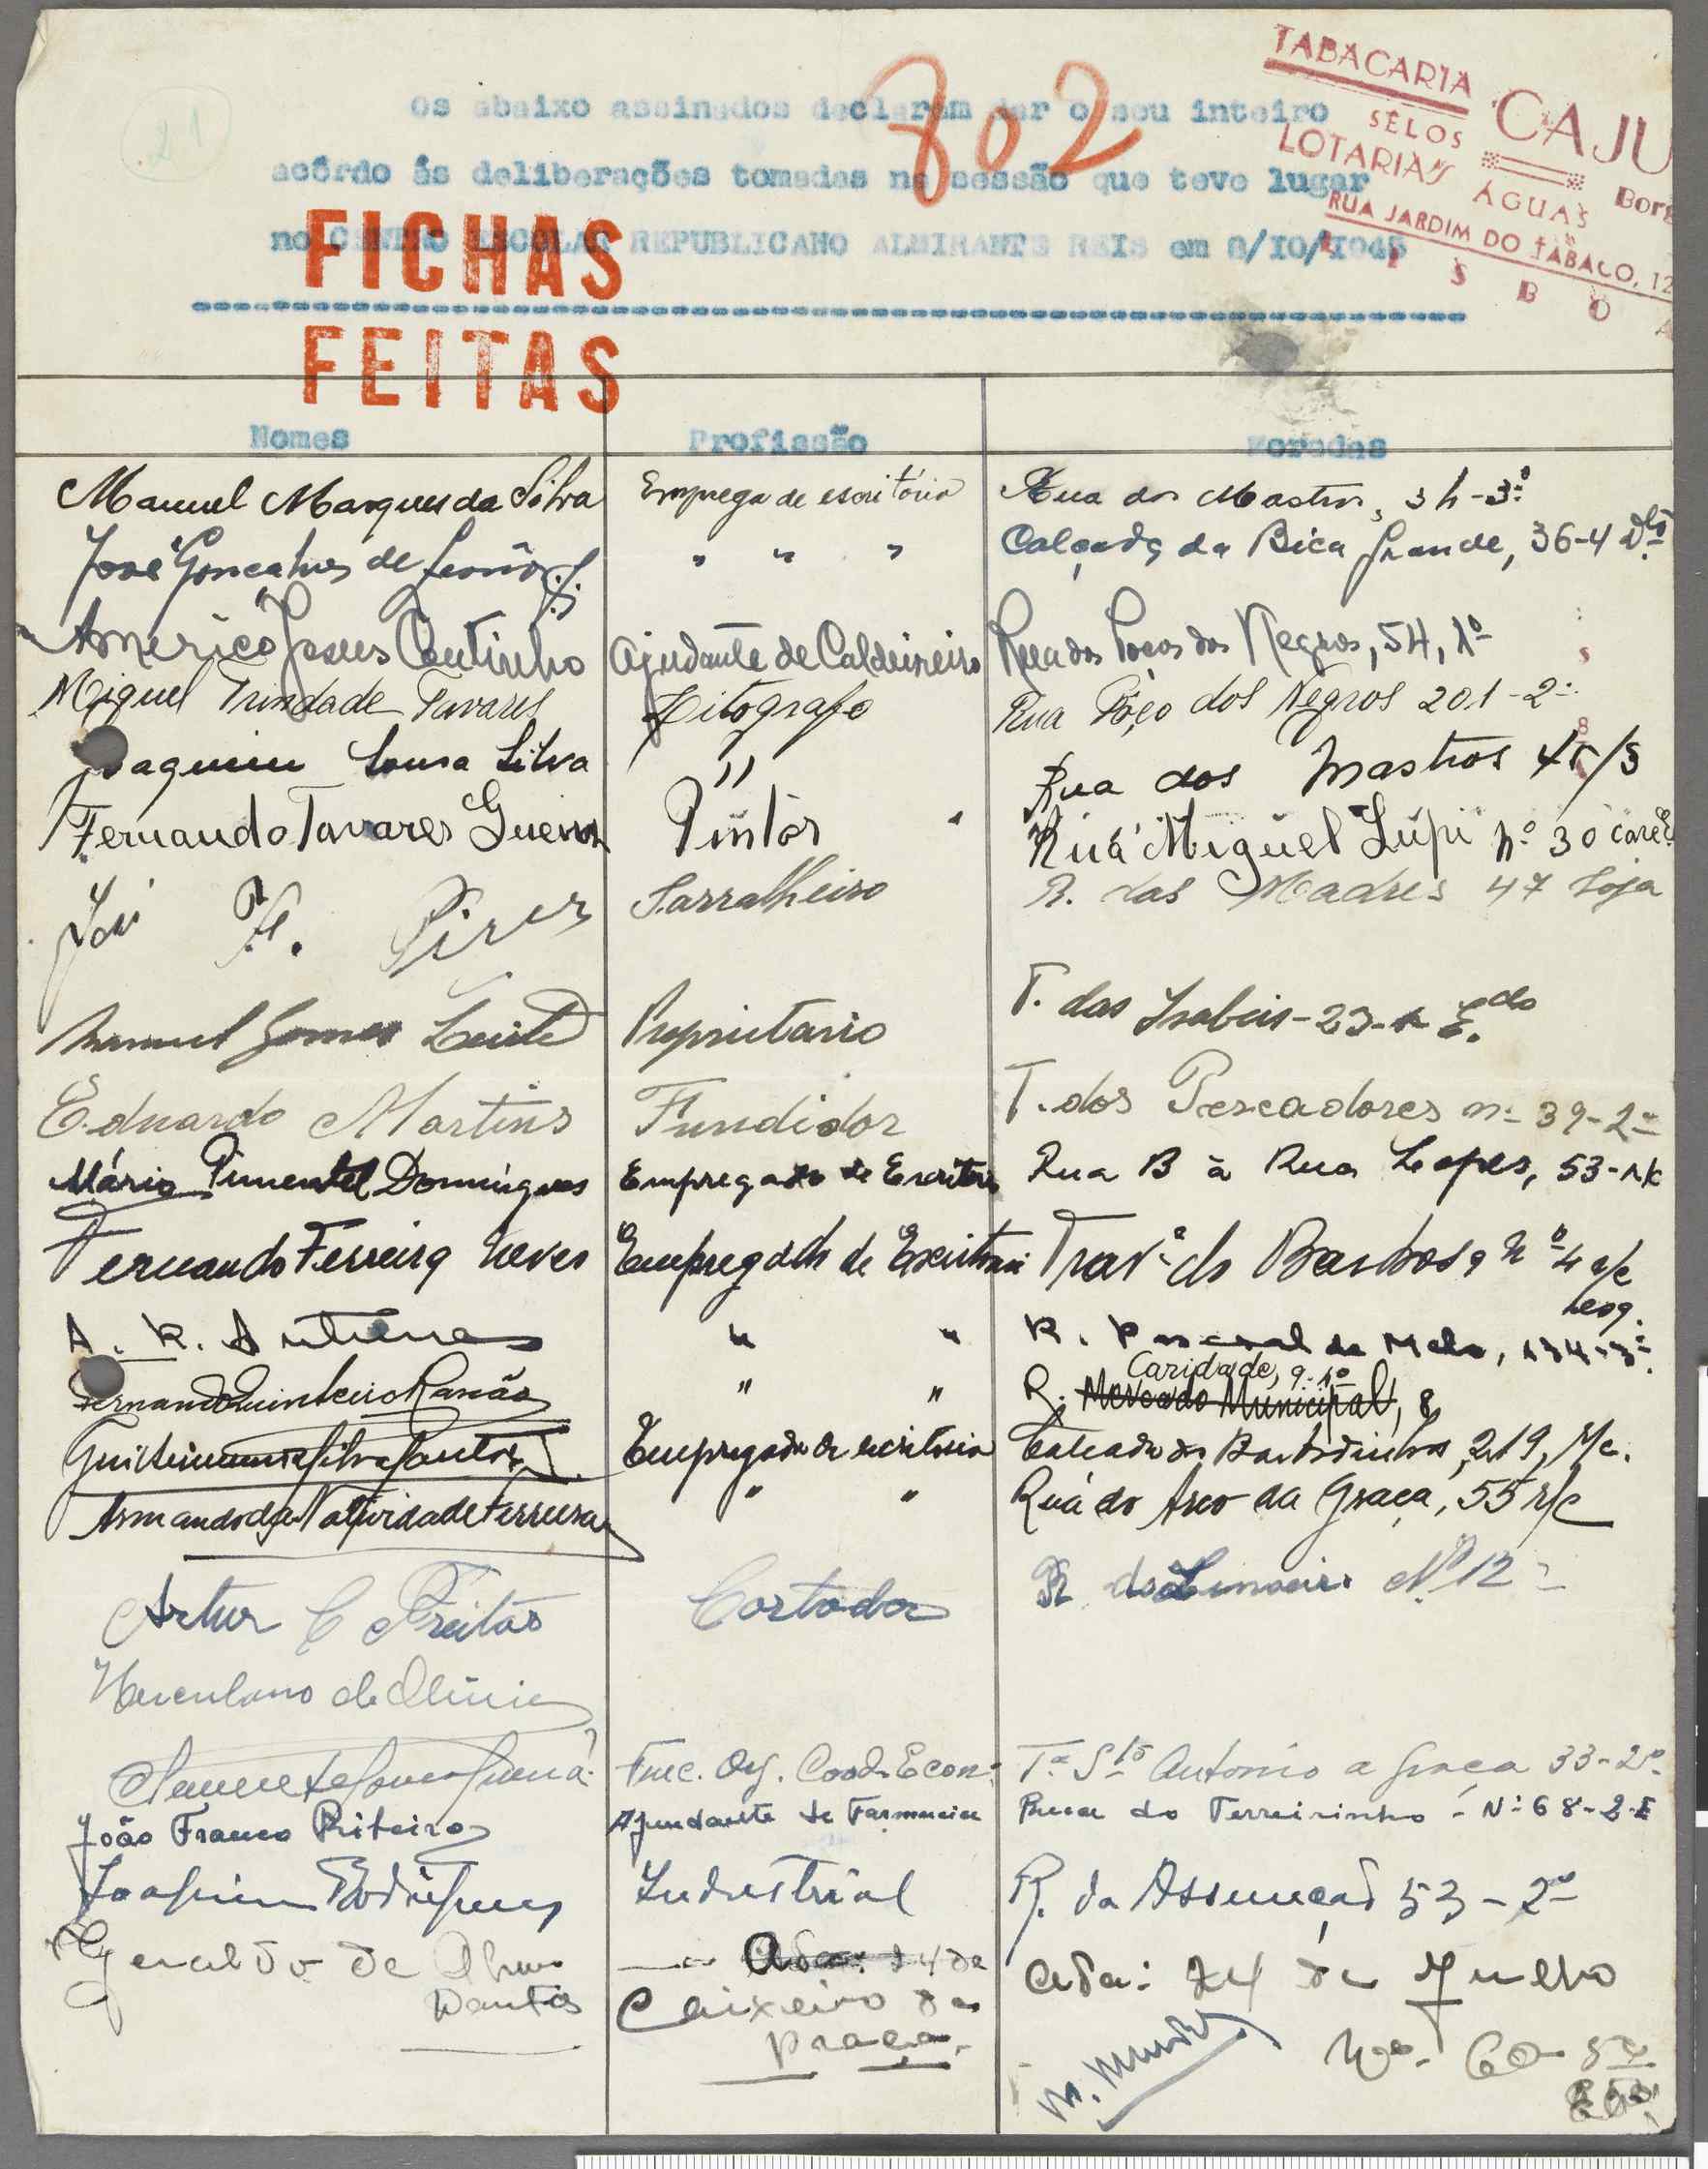 21
802
TABACARIA CAJU
SÊLOS
LOTARIAS
ÁGUAS
RUA JARDIM DO TABACO, 12
LISBOA
Os abaixo assinados declaram dar o seu inteiro
acôrdo ás deliberações tomadas na sessão que teve lugar
no CENTRO ESCOLAR REPUBLICANO ALMIRANTE REIS em 8/IO/I945
FICHAS
FEITAS
Nomes Profissão Moradas
Manuel Marques da Silva Emprega de escritório Rua dos Mastros, 34-3º
José Gonçalves de " " " Calçada da Bica Grande, 36-4 Dtº
Américo Jesus Coutinho Ajudante de Caldeireiro Rua dos Poços dos Negros, 54, 1º
Miguel Trindade Tavares Litógrafo Rua Pôço dos Negros 201-2º
Joaquim Sousa Silva " Rua dos Mastros
Fernando Tavares Guerra Pintor Rua Miguel Lúpi nº 30
José F. Pires Sarralheiro R. das Madres 47 Loja
Manuel Gomes Leite Proprietario T. das Isabeis-23-
Eduardo Martins Fundidor T. dos Pescadores nº 39-2º
Mário Pimentel Domingues Empregado de Escritório Rua B à Rua Lopes, 53-r/c
Fernando Ferreira Neves Empregado de Escritório Travª do Barbosa nº 4 r/c
esq.
A. R. Antunes " " R. Pascoal de Melo, 134-3º.
Fernando Quinteiro Ramão " " R. Mercado Municipal, 8
Caridade, 9-1º
Guilherme Silva Santos Empregado de escritório Calçada dos Barbadinhos, 219, r/c.
Armando da Natividade Ferreira " " Rua do Arco da Graça, 55 r/c
Artur C Freitas Cortador R. do Limoeiro Nº 12
Herculano de Oliveira
Func. Org. Coord. Econ. Tª Stº António a Graça 33-2º
João Franco Ribeiro Ajundante de Farmacia Rua do Terreirinho - Nº 68-2-E
Joaquim Rodrigues Industrial R. da Assunção 53-2º
Geraldo de Dantas Caixeiro de praça. Avda: 24 de Julho
Nº. 60